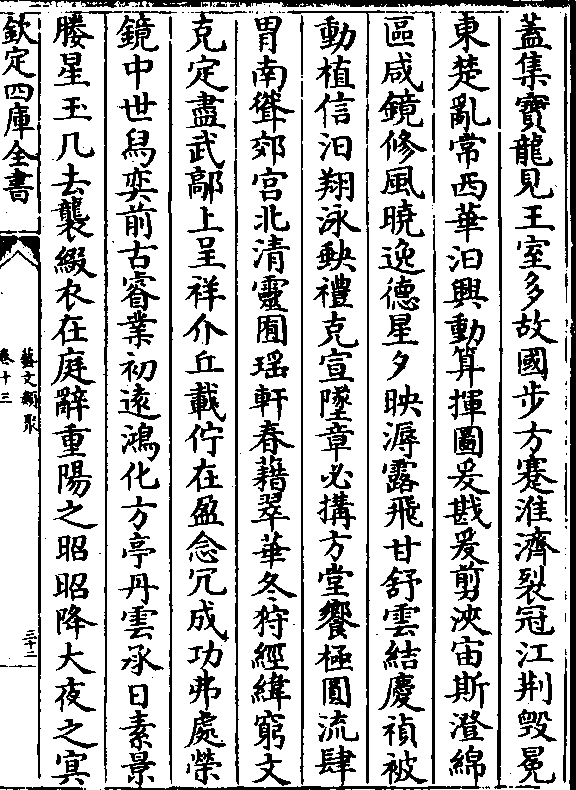 蓋集寶龍見王室多故國步方蹇淮濟裂冠江荆毁冕
東楚亂常西華汩興動算揮圖爰戡爰剪浹宙斯澄綿
區咸鏡修風曉逸德星夕映溽露飛甘舒雲結慶禎被
動植信汩翔泳缺禮克宣墜章必搆方堂饗極圓流肆
胃南聳郊宮北清靈囿瑶軒春藉翠華冬狩經緯窮文
克定盡武鄗上呈祥介丘載佇在盈念冗成功弗處榮
鏡中世舄奕前古睿業初遠鴻化方亭丹雲承日素景
媵星玉几去襲綴衣在庭辭重陽之昭昭降大夜之冥
欽定四庫全書
藝文類聚
卷十三
三十二